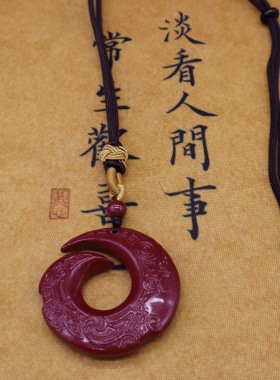 淡看人間事
常生歡喜